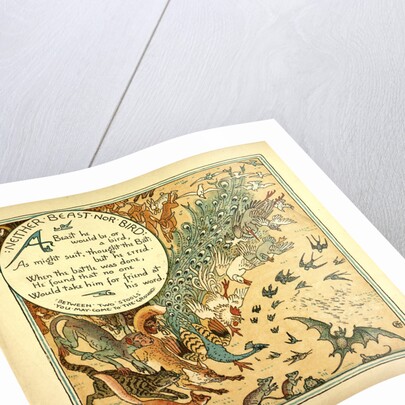 ·NEITHER·BEAST·NOR·BIRD·
A Beast he
would be, or
a bird,
As might suit, thought the Bat:
but he erred.
When the battle was done,
He found that no one
Would take him for friend at
his word.
"BETWEEN·TWO·STOOLS
YOU MAY·COME TO THE GROUND"